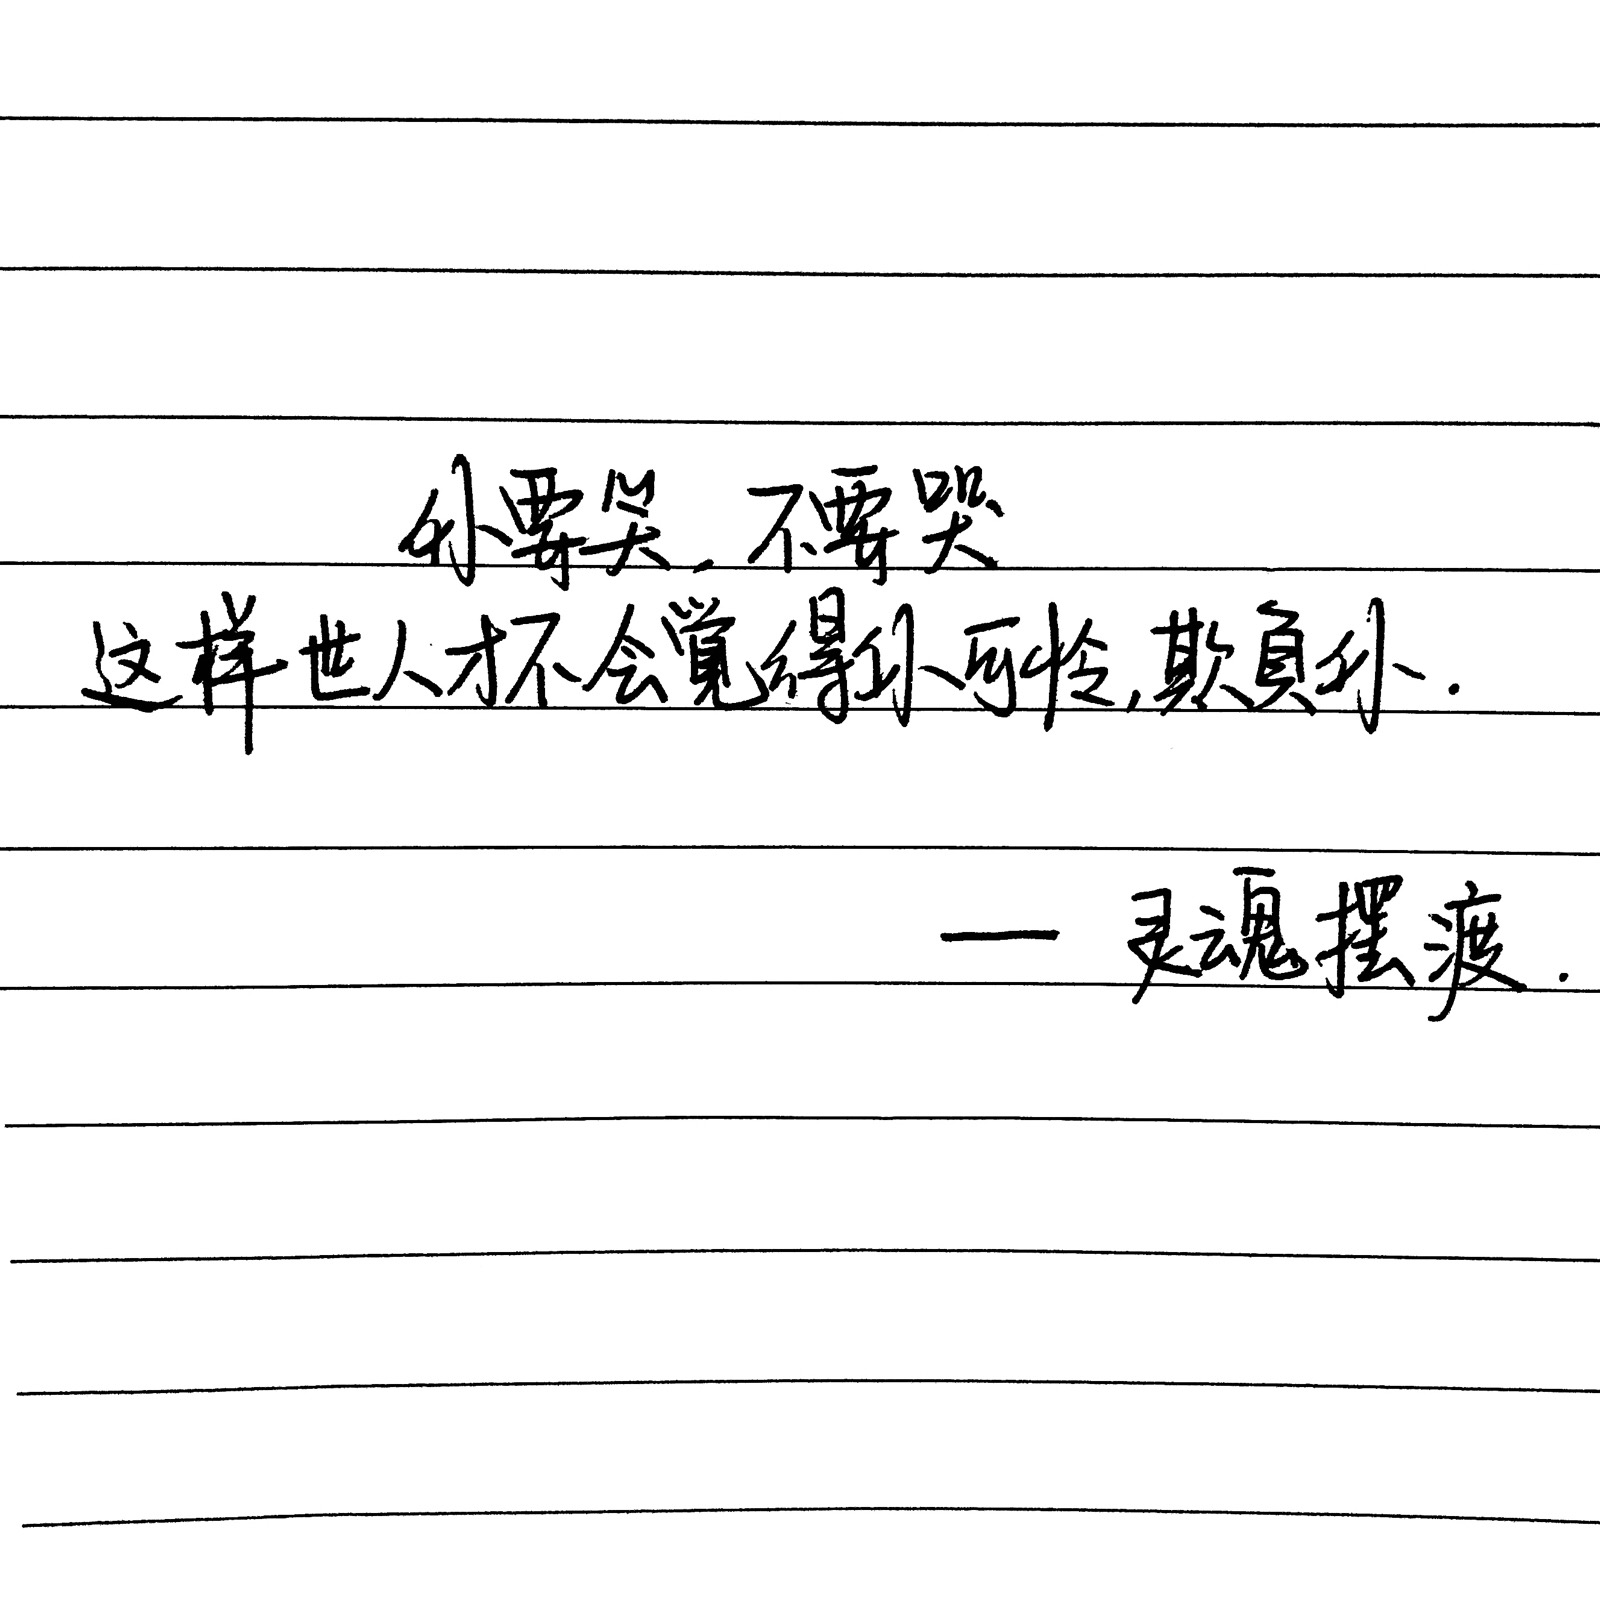 你要哭,不要哭
这样世人才不会覺得你可怜,欺負你.
— 灵魂摆渡.